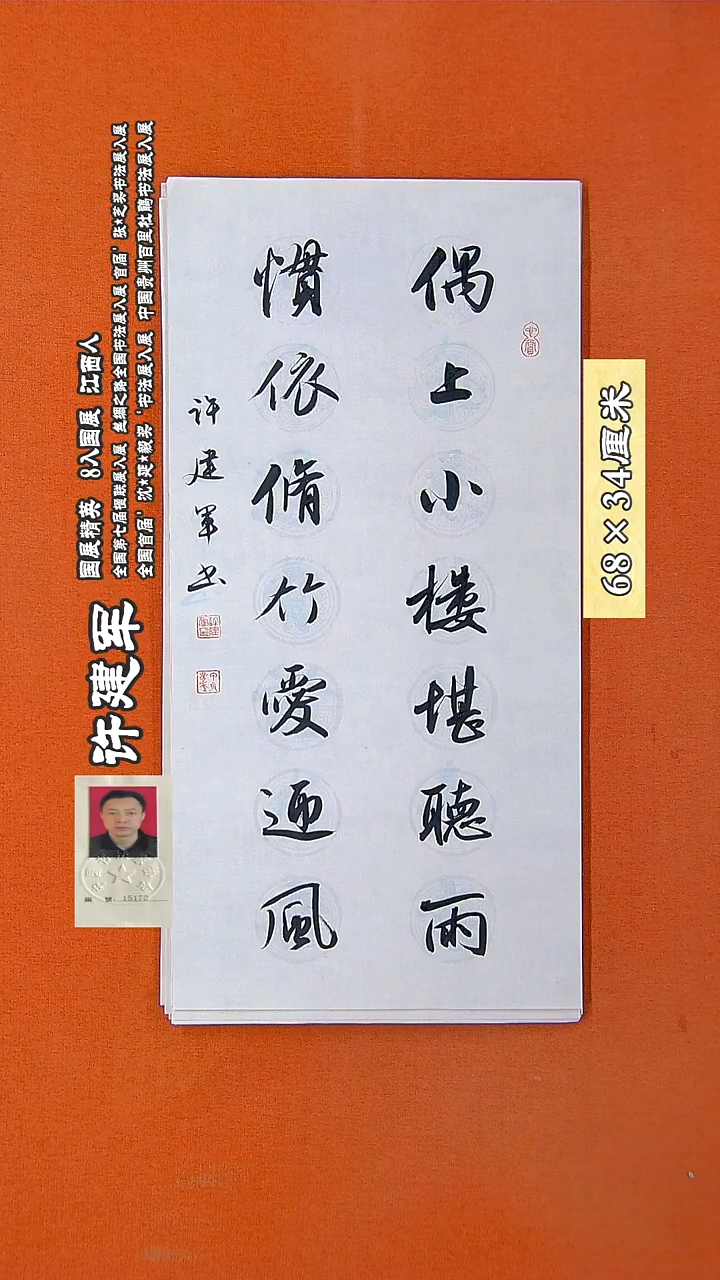 偶上小楼堪聽雨
慣依脩竹愛迎風
许建軍书
68×34厘米
许建军
国展精英 8入国展 江西人
全国第七届楹联展入展 丝绸之路全国书法展入展 首届'张*芝奖书法展入展
全国首届'沈*延*毅奖'书法展入展 中国贵州百里杜鹃书法展入展
編號:15172